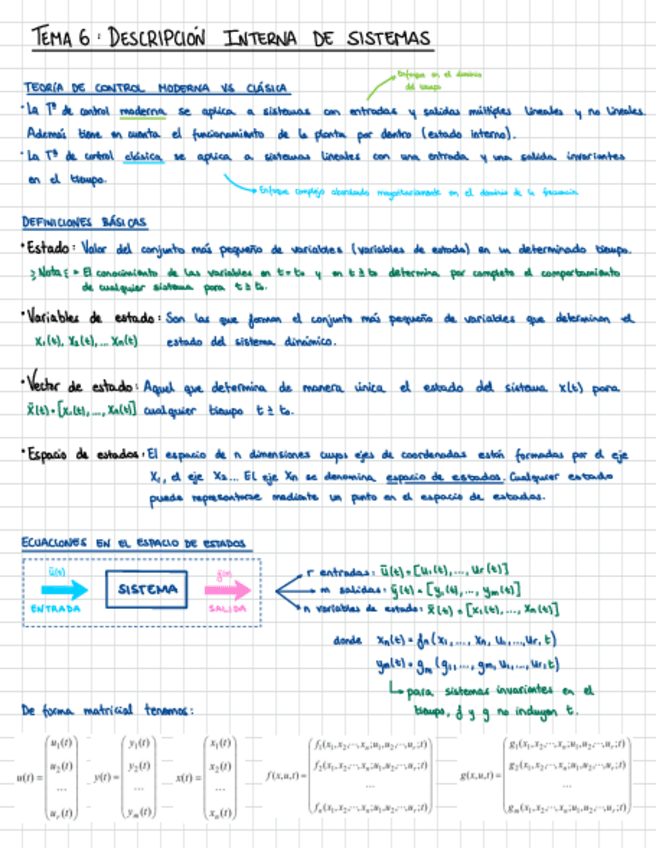 TEMA 6: DESCRIPCIÓN INTERNA DE SISTEMAS
TEORÍA DE CONTROL MODERNA VS CLÁSICA
Enfoque en el dominio
del tiempo
· La Tª de control moderna se aplica a sistemas con entradas y salidas múltiples lineales y no lineales.
Además tiene en cuenta el funcionamiento de la planta por dentro (estado interno).
· La Tª de control clásica se aplica a sistemas lineales con una entrada y una salida invariantes
en el tiempo.
Enfoque complejo abordado mayoritariamente en el dominio de la frecuencia
DEFINICIONES BÁSICAS
· Estado: Valor del conjunto más pequeño de variables (variables de estado) en un determinado tiempo.
Nota: El conocimiento de las variables en t=t₀ y en t≥t₀ determina por completo el comportamiento
de cualquier sistema para t≥t₀.
· Variables de estado: Son las que forman el conjunto más pequeño de variables que determinan el
x₁(t), x₂(t), ... xn(t) estado del sistema dinámico.
· Vector de estado: Aquel que determina de manera única el estado del sistema x(t) para
x̄(t)=[x₁(t), ..., xn(t)] cualquier tiempo t≥t₀.
· Espacio de estados: El espacio de n dimensiones cuyos ejes de coordenadas están formadas por el eje
X₁, el eje X₂... El eje Xn se denomina espacio de estados. Cualquier estado
puede representarse mediante un punto en el espacio de estados.
ECUACIONES EN EL ESPACIO DE ESTADOS
ū(t) SISTEMA ȳ(t)
ENTRADA SALIDA
r entradas: ū(t)=[u₁(t), ..., ur(t)]
m salidas: ȳ(t)=[y₁(t), ..., ym(t)]
n variables de estado: x̄(t)=[x₁(t), ..., xn(t)]
donde xn(t)=fn(x₁, ..., xn, u₁, ..., ur, t)
ym(t)=gm(g₁, ..., gm, u₁, ..., ur, t)
para sistemas invariantes en el
tiempo, f y g no incluyen t.
De forma matricial tenemos:
u(t) = (u₁(t) u₂(t) ... uᵣ(t)) y(t) = (y₁(t) y₂(t) ... yₘ(t)) x(t) = (x₁(t) x₂(t) ... xₙ(t)) f(x,u,t) = (f₁(x₁,x₂,···,xₙ;u₁,u₂,···,uᵣ;t) f₂(x₁,x₂,···,xₙ;u₁,u₂,···,uᵣ;t) ... fₙ(x₁,x₂,···,xₙ;u₁,u₂,···,uᵣ;t)) g(x,u,t) = (g₁(x₁,x₂,···,xₙ;u₁,u₂,···,uᵣ;t) g₂(x₁,x₂,···,xₙ;u₁,u₂,···,uᵣ;t) ... gₘ(x₁,x₂,···,xₙ;u₁,u₂,···,uᵣ;t))